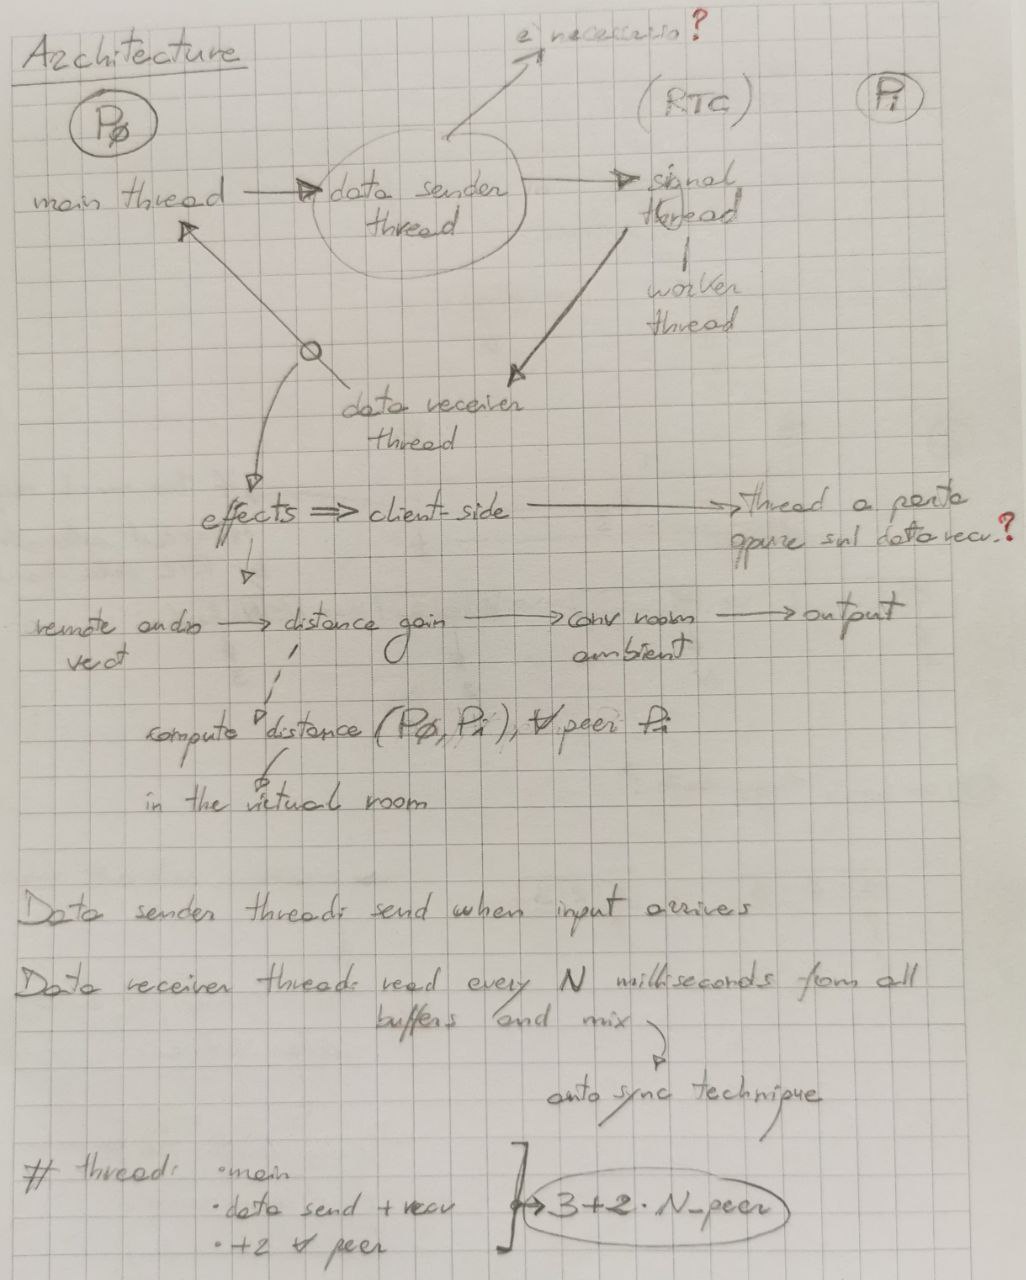 è necessario?
Architecture
(RTC)
Pi
PØ
main thread
data sender
thread
signal
thread
worker
thread
data receiver
thread
effects ⇒ client-side → thread a parte
oppure sul data recv.?
remote audio → distance gain → conv room → output
vect
ambient
compute distance (PØ, Pi), ∀ peer Pi
in the virtual room
Data sender thread: send when input arrives
Data receiver thread: read every N milliseconds from all
buffers and mix
auto sync technique
# thread: • main
• data send + recv
• +2 ∀ peer
3+2·N_peer